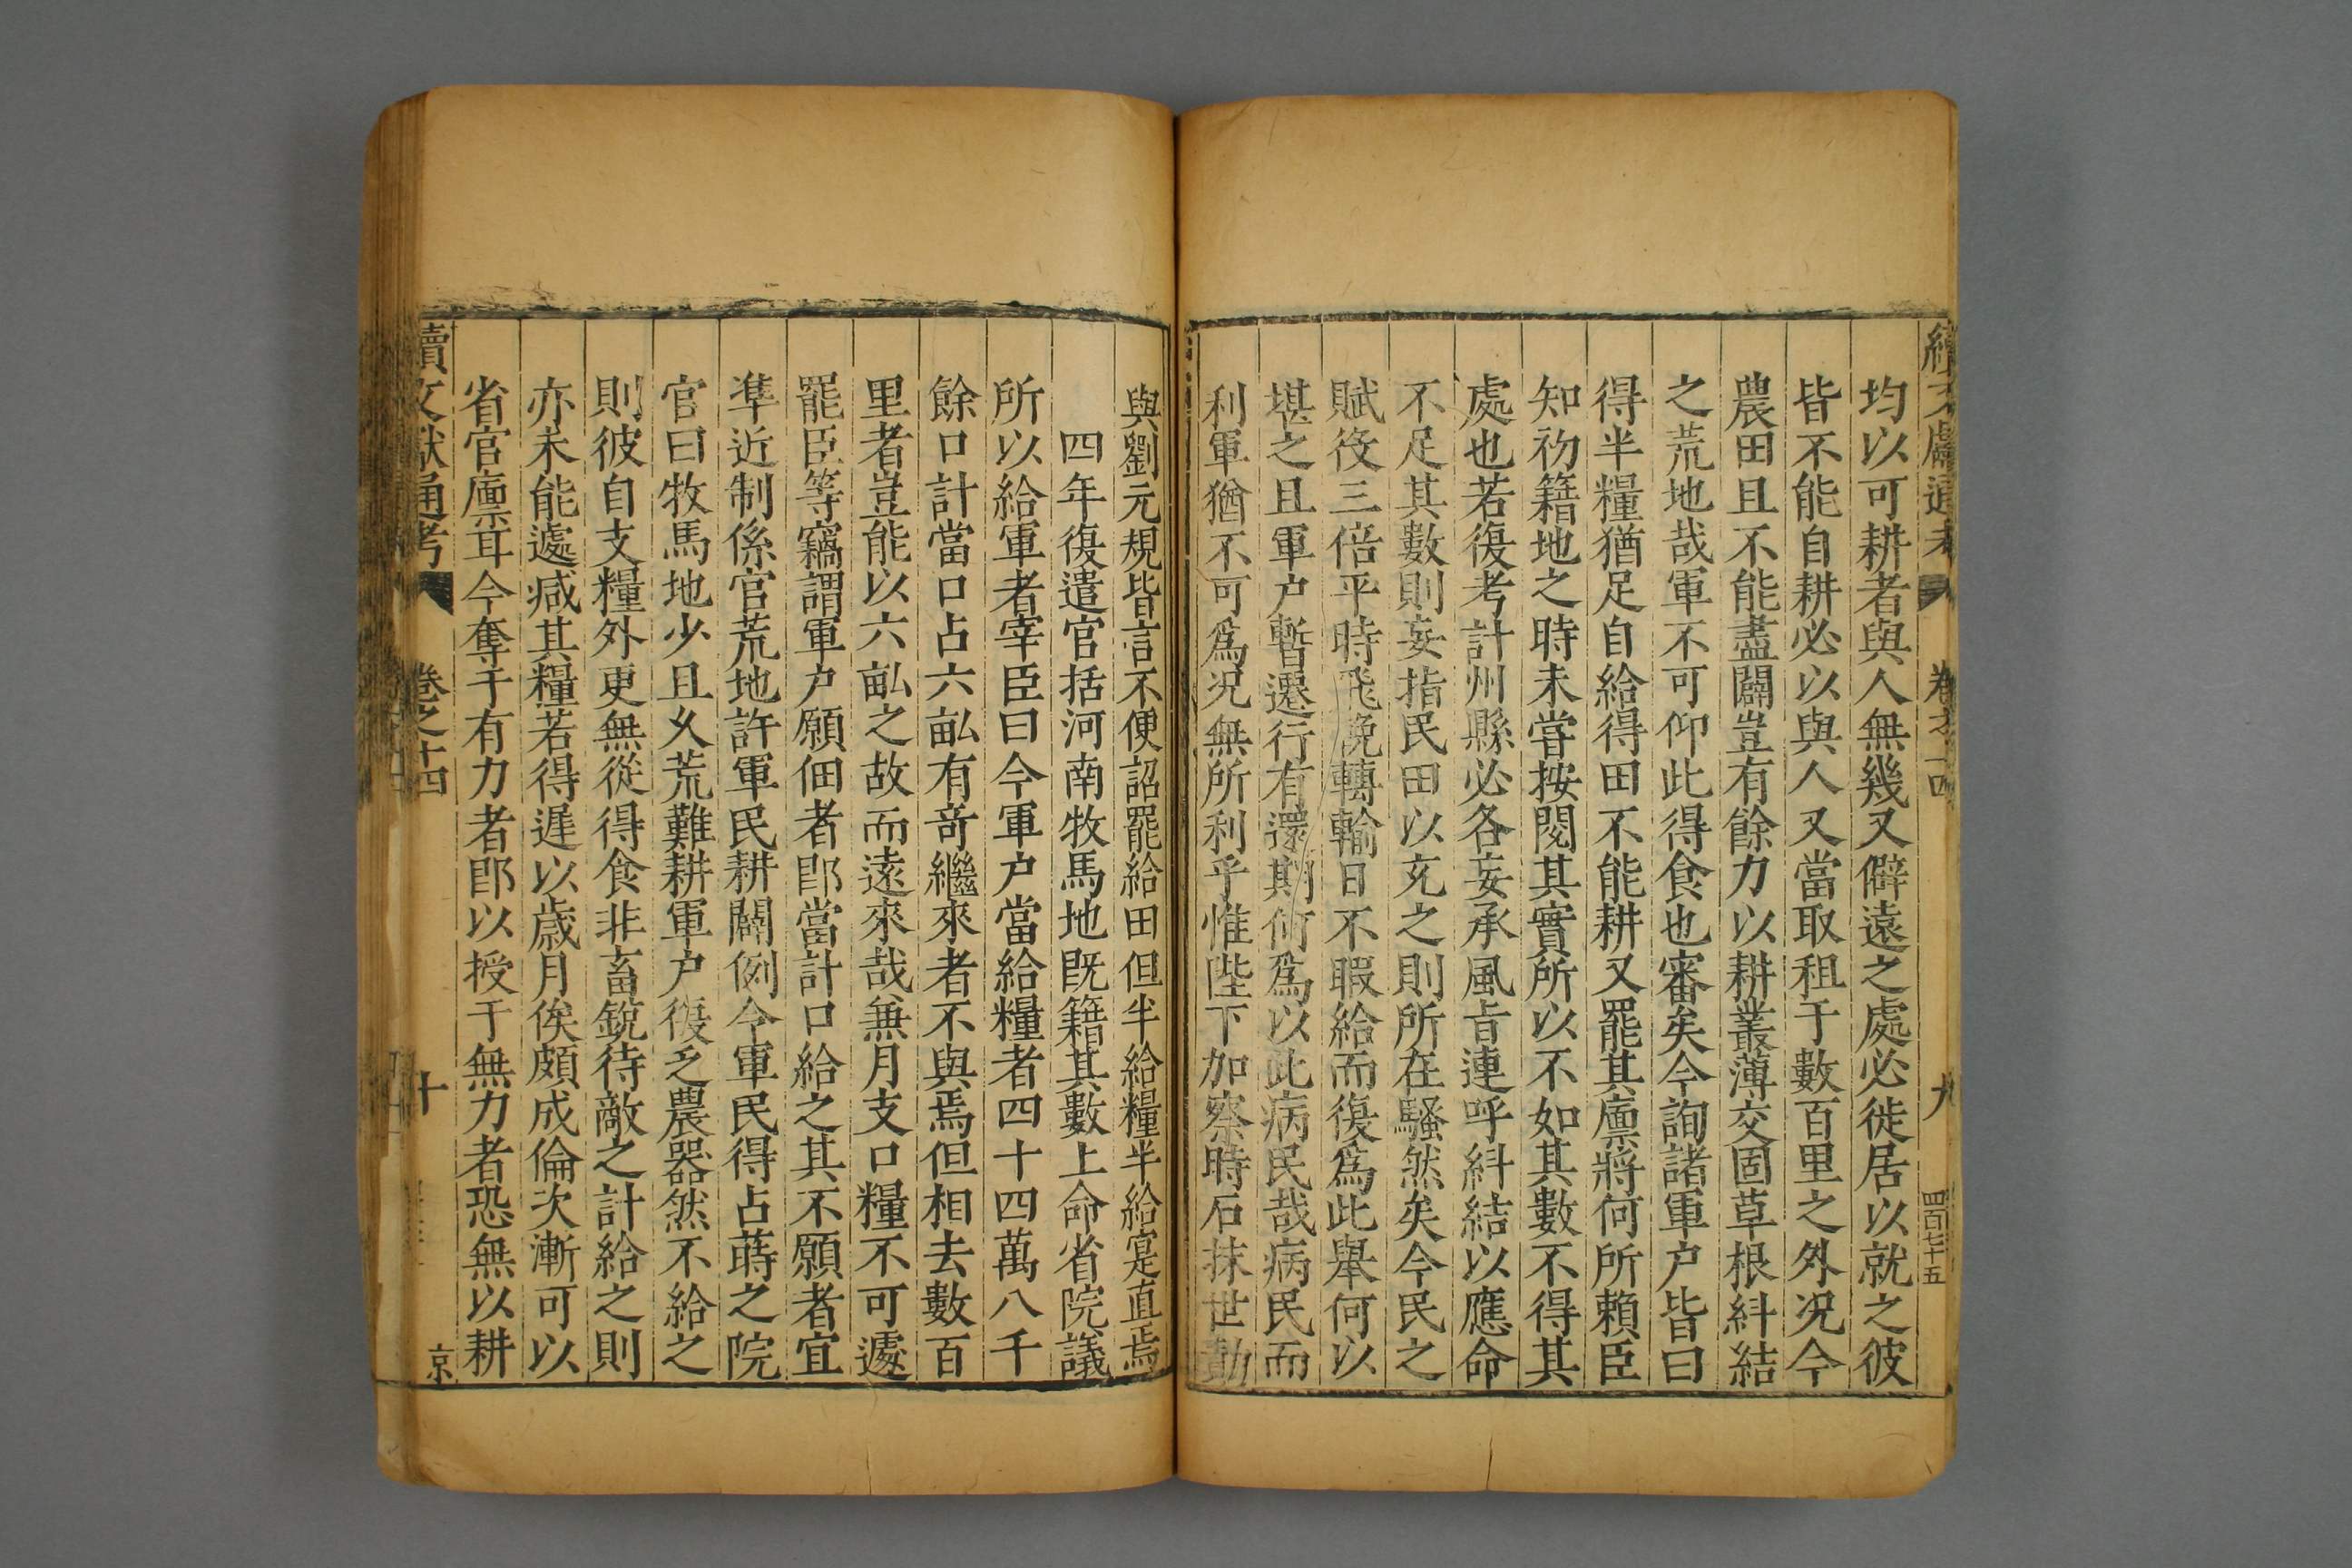 續文獻通考
卷之十四
九
四百七十五
均以可耕者與人無幾又僻遠之處必徙居以就之彼
皆不能自耕必以與人又當取租于數百里之外况今
農田且不能盡闢豈有餘力以耕叢薄交固草根糾結
之荒地哉軍不可仰此得食也審矣今詢諸軍户皆曰
得半糧猶足自給得田不能耕又罷其廪將何所賴臣
知初籍地之時未甞按閱其實所以不如其數不得其
處也若復考計州縣必各妄承風旨連呼糾結以應命
不足其數則妄指民田以充之則所在騷然矣今民之
賦役三倍平時飛輓轉輸日不暇給而復爲此舉何以
堪之且軍户暫遷行有還期何爲以此病民哉病民而
利軍猶不可爲况無所利乎惟陛下加察時石抹世勣
與劉元規皆言不便詔罷給田但半給糧半給寔直焉
四年復遣官括河南牧馬地既籍其數上命省院議
所以給軍者宰臣曰今軍户當給糧者四十四萬八千
餘口計當口占六畆有奇繼來者不與焉但相去數百
里者豈能以六畆之故而遠來哉兼月支口糧不可遽
罷臣等竊謂軍户願佃者即當計口給之其不願者宜
準近制係官荒地許軍民耕闢例令軍民得占蒔之院
官曰牧馬地少且久荒難耕軍户復乏農器然不給之
則彼自支糧外更無從得食非畜銳待敵之計給之則
亦未能遽减其糧若得遲以歲月俟頗成倫次漸可以
省官廪耳今奪于有力者即以授于無力者恐無以耕
續文獻通考
卷之十四
十
京